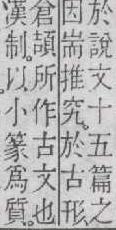 於說文十五篇之
因耑推究。於古形
倉頡所作古文也
漢制。以小篆爲質。